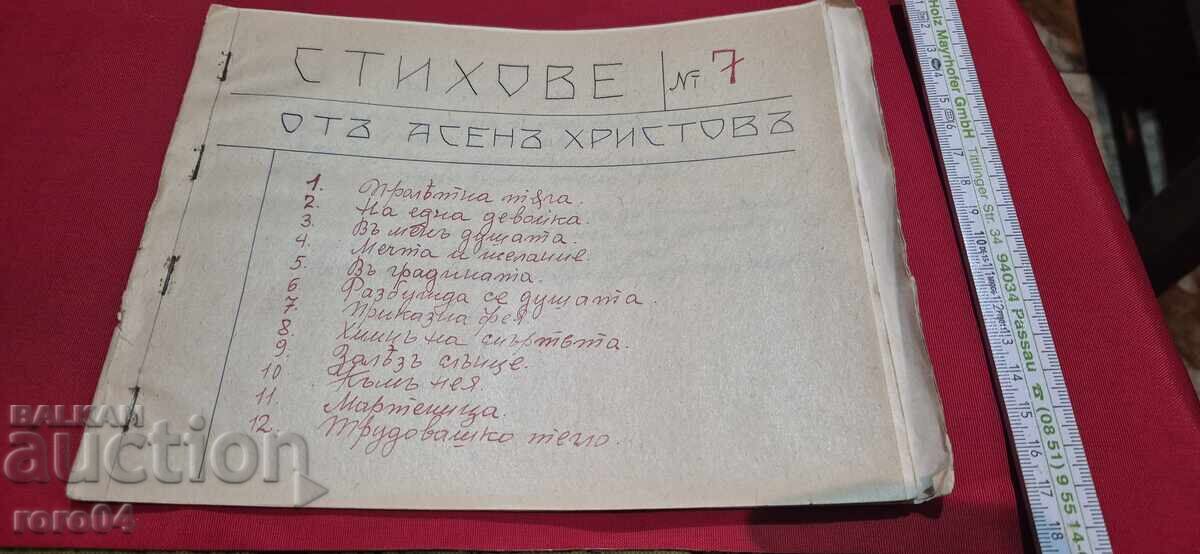 СТИХОВЕ № 7
ОТЪ АСЕНЪ ХРИСТОВЪ
1. Пролѣтна тъга.
2. На една девойка.
3. Въ менъ душата.
4. Мечта и желание.
5. Въ градината.
6. Разбужда се душата.
7. Приказна фея
8. Химнъ на смъртьта.
9. Залѣзъ слънце.
10 Къмъ нея.
11. Мартеница.
12. Трудовашко тегло.
БАЛКАН
auction
roro04
Holz Mayrhofer GmbH Tittlinger Str. 34 94034 Passau ☎ (08 51) 9 55 14-
2 3 4 5 6 7 8 9 10 11 12 13 14 15 16 17 18